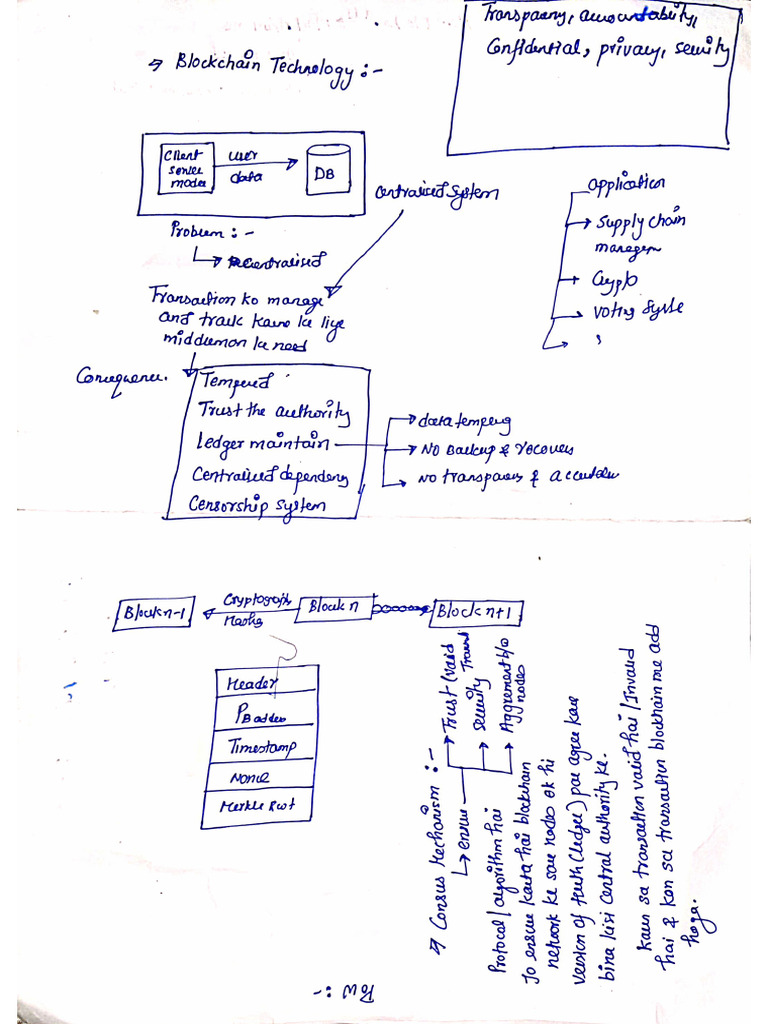 Transparency, accountability,
Confidential, privacy, security
→ Blockchain Technology :-
Client
server
model
user
data
DB
Centralised System
Problem :-
Centralised
Transaction ko manage
and track karne ke liye
middlemon ke need
Application
Supply chain
managem
Crypto
Voting Syste
Consequence.
Tempered
Trust the authority
Ledger maintain
Centralised dependency
Censorship system
data temperg
No Backup & recovery
No transparency &
Block n-1
Cryptograph
Hashig
Block n
Block n+1
Header
PB addres
Timestamp
Nonce
Merkle Root
→ Consus Mechanism :-
ensure
Trust (valid
Transt
security
Aggrement b/o
nodes
Protocol / algorithm hai
Jo ensure karta hai blockchain
network ke sare nodes ek hi
version of truth (ledger) par agree kare
bina kisi central authority ke.
Kaun sa transaction valid hai / Invalid
hai & kon sa transaction blockchain me add
hoga.
POW :-